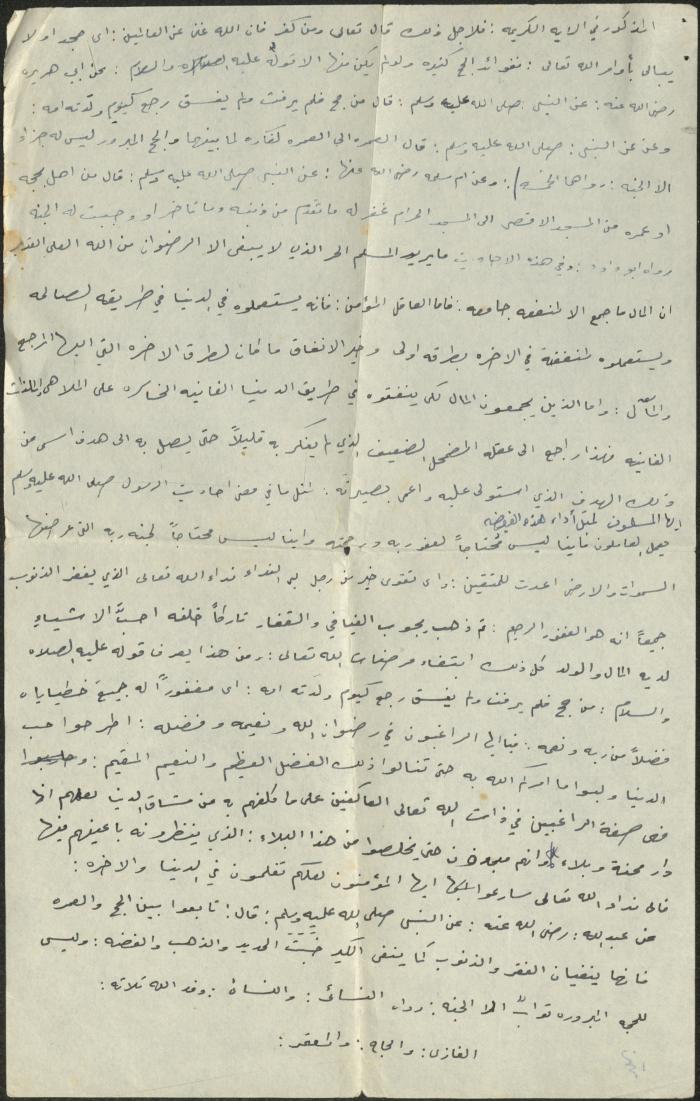 المذكور في الايه الكريمه : فلاجل ذلك قال تعالى ومن كفر فان الله غن عن العالمين : اى جحد اولا
يبالى بأوامر الله تعالى : ففوائد الحج كثيره ولولم يكن منها الا قوله عليه الصلاه والسلام : عن ابى هريره
رضى الله عنه : عن النبى صلى الله عليه وسلم : قال من حج فلم يرفث ولم يفسق رجع كيوم ولدته امه :
وعن عن النبى : صلى الله عليه وسلم : قال العمره الى العمره كفاره لما بينهما والحج المبرور ليس له جزاء
الا الجنه : رواها الخمسه / : وعن ام سلمه رضى الله عنها : عن النبى صلى الله عليه وسلم : قال من اهل بحجه
او عمره من المسجد الاقصى الى المسجد الحرام غفر له ما تقدم من ذنبه وما تأخر او وجبت له الجنه
رواه ابو داود : وفي هذه الاحاديث ما يريد المسلم الحر الذي لا يبتغى الا الرضوان من الله العلى القدير
ان المال ما جمع الا لمنفعه جامعه : فاما العاقل المؤمن : فانه يستعملوه في الدنيا في طريقه الصالحه
ويستعملوه لمنفعته في الاخره بطرقه اولى وخير الانفاق ما كان لطرق الاخره التي اليها المرجع
والمآل : واما الذين يجمعون المال لكى ينفقوه في طريق الدنيا الفانيه الخاسره على الملاهى والملذات
الفانيه فهذا راجع الى عقله المضمحل الضعيف الذي لم يفكر به قليلاً حتى يصل به الى هدف اسمى من
ذلك الهدف الذي استولى عليه واعمى بصيرته : لمثل ما في معنى احاديث الرسول صلى الله عليه وسلم
ايها المسلمون لمثل أداء هذه الفريضه
يعمل العاملون فأينا ليس محتاجاً لعفو ربه ورحمته واينا ليس محتاجاً لجنه ربه التى عرضها
السموات والارض اعدت للمتقين : واى تقوى خير من رجل لبى النداء نداء الله تعالى الذي يغفر الذنوب
جميعاً انه هو الغفور الرحيم : ثم ذهب يجوب الفيافي والقفار تاركاً خلفه احبَّ الاشياءِ
لديه المال والولد كل ذلك ابتغاء مرضات الله تعالى : ومن هذا يعرف قوله عليه الصلاه
والسلام : من حج فلم يرفث ولم يفسق رجع كيوم ولدته امه : اى مغفوراً له جميع خطيئاياه
فضلاً من ربه ونعمه : فيا ايها الراغبون في رضوان الله ونعيمه وفضله : اطرحوا حب
الدنيا ولبوا ما امركم الله به حتى تنالوا ذلك الفضل العظيم والنعيم المقيم :
فهى صفة الراغبين في ذات الله تعالى العاكفين على ما كلفهم به من مشاق الدنيا لعلهم انها
دار محنة وبلاء وانهم حتى يخلصوا من هذا البلاء : الذي ينتظرونه باعينهم فيها
فالى نداء الله تعالى سارعوا ايها المؤمنون لعلكم تفلحون في الدنيا والاخره :
عن عبد الله : رضى الله عنه : عن النبى صلى الله عليه وسلم : قال : تابعوا بين الحج والعمره
فانها ينفيان الفقر والذنوب كما ينفى الكير خبث الحديد والذهب والفضه : وليس
للحجه المبروره ثوابٌ الا الجنه : رواه النسائى : والنسائ : وفد الله ثلاثه :
الغازى : والحاج : والمعتمر :